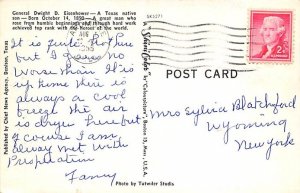 General Dwight D. Eisenhower — A Texas native
son — Born October 14, 1890 — A great man who
rose from humble beginnings and through hard work
achieved top rank with the heroes of the world.
It is quite Hot here
but I guess no
worse than it is
up home there is
always a cool
breeze the air
is dryer here but
of course I am
alway met With
Prespiration
Fanny
Published by Chief News Agency, Denison, Texas
SK5271
by "Colourpicture", Boston 15, Mass., U.S.A.
POST CARD
2¢
Mrs Sylvia Blatchford
Wyoming
New york
Photo by Tutwiler Studio